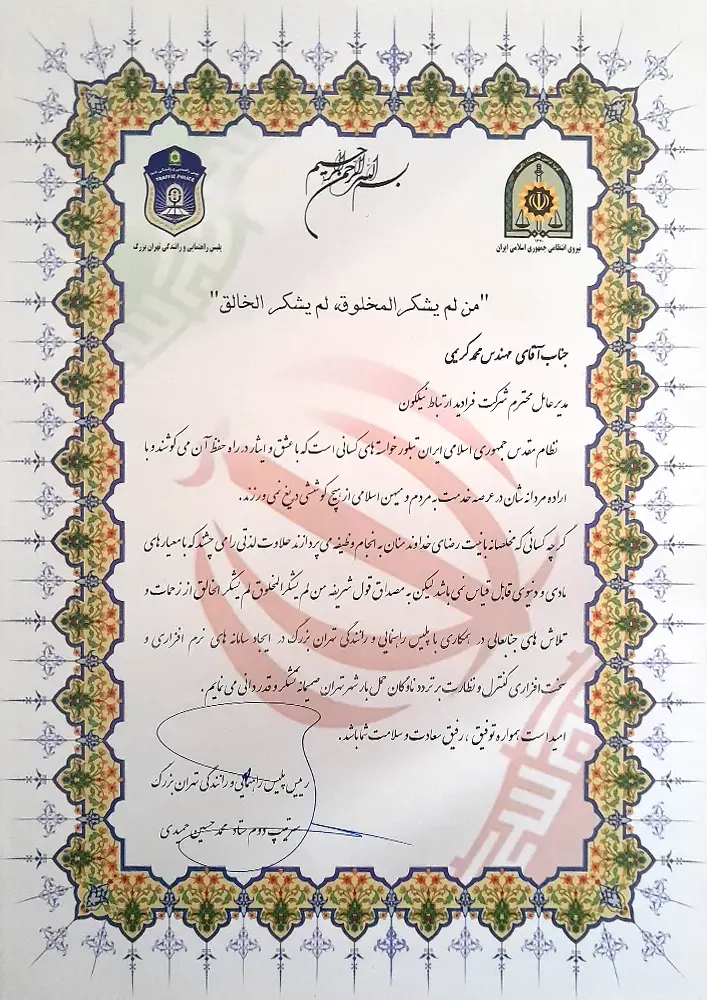 بسم الله الرحمن الرحیم
TRAFFIC POLICE
پلیس راهنمایی و رانندگی تهران بزرگ
نیروی انتظامی جمهوری اسلامی ایران
"من لم یشکر المخلوق، لم یشکر الخالق"
جناب آقای مهندس محمد کریمی
مدیر عامل محترم شرکت فرادید ارتباط نیلگون
نظام مقدس جمهوری اسلامی ایران تبلور خواسته های کسانی است که با عشق و ایثار در راه حفظ آن می کوشند و با
اراده مردانه شان در عرصه خدمت به مردم و میهن اسلامی از هیچ کوششی دریغ نمی ورزند.
گرچه کسانی که مخلصانه با نیت رضای خداوند منان به انجام وظیفه می پردازند حلاوت لذتی را می چشند که با معیارهای
مادی و دنیوی قابل قیاس نمی باشد لیکن به مصداق قول شریفه من لم یشکر المخلوق لم یشکر الخالق از زحمات و
تلاش های جنابعالی در همکاری با پلیس راهنمایی و رانندگی تهران بزرگ در ایجاد سامانه های نرم افزاری و
سخت افزاری کنترل و نظارت بر تردد ناوگان حمل بار شهر تهران صمیمانه تشکر و قدردانی می نمایم.
امید است همواره توفیق، رفیق سعادت و سلامت شما باشد.
رییس پلیس راهنمایی و رانندگی تهران بزرگ
سرتیپ دوم ستاد محمد حسین حمیدی